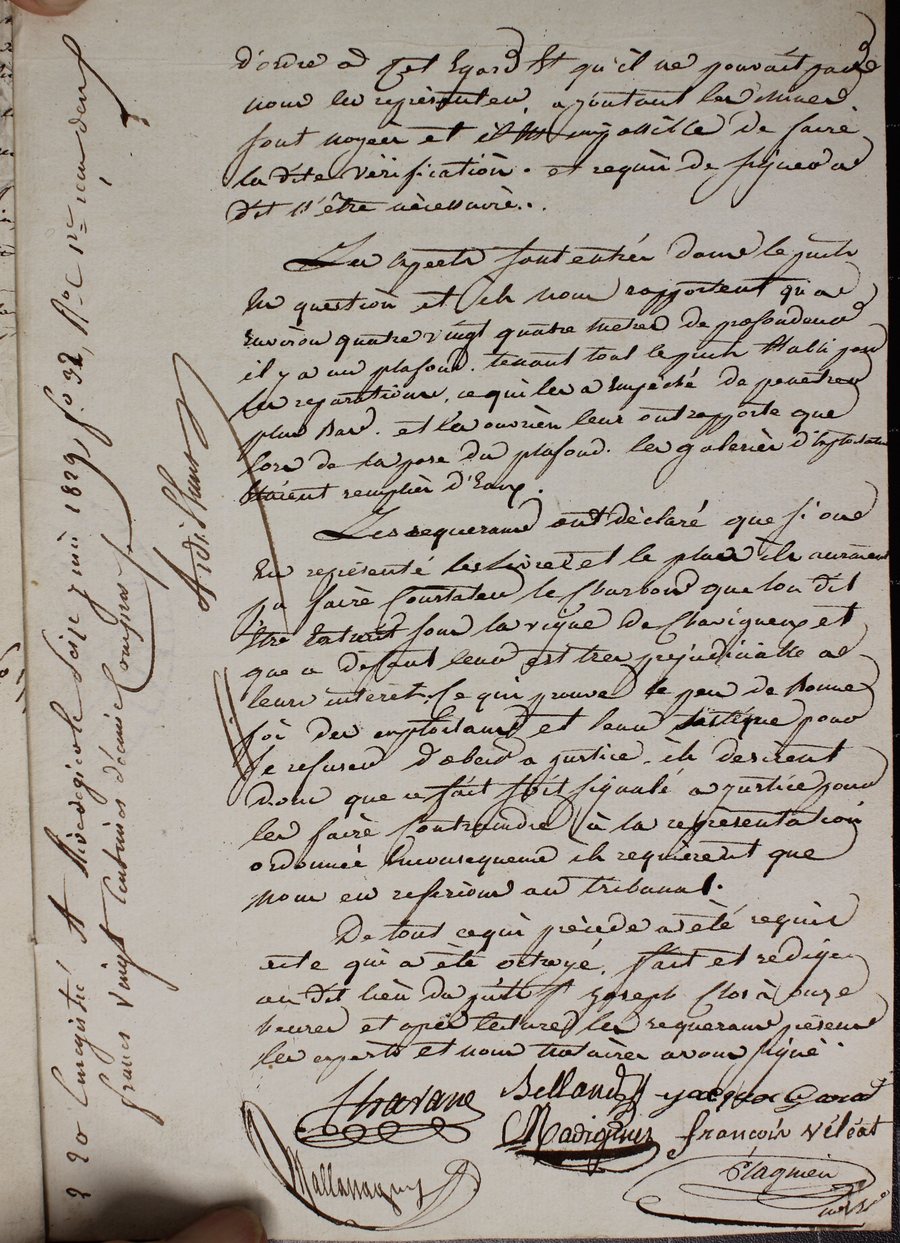 d'ordre à cet Egard Et qu'il ne pouvait pas
nous les représenter, ajoutant les mines
sont noyées et il est impossible de faire
la dite vérification. et requis de signer a
dit n'être nécessaire..
Les experts sont entrés dans le puits
En question et ils nous rapportent qu'a
Environ quatre vingt quatre metres de profondeur
il y a un plafond tenant tout le puits Etabli pour
les reparations, ce qui les a Empêché de penetrer
plus Bas. et les ouvriers leur ont rapporté que
lors de la pose du plafond. les galeries d'Exploitation
Etaient remplies d'Eaux.
Les requerans ont déclaré que si on
En représenté les livres et le plan ils auraient
pu faire Constater le Charbon que l'on dit
Etre Extrait sous la vigne de Chavigneux et
que ce défaut leur est tres prejudiciable a
leurs intérêt. Ce qui prouve le peu de Bonne
foi des exploitans et leur pour
se refuser d'obeir a justice. ils desirent
donc que ce fait soit signalé a justice pour
les faire Contraindre à la représentation
ordonnée En conséquence ils requièrent que
nous en referions au tribunal.
De tout ce qui précède a été requis
acte qui a été octroyé. fait et redigé
au dit lieu du puits St Joseph Clos à onze
heures et après lecture les requerans présens
les experts et nous notaires avons signé
Chavane Bellandy jacque Garat
Madignier françois Véléat
Mallassagny Plagnieu
nre
20 Enregistré A Rivedegier le Seize juin 1829, fo. 32, Ro. C 1re un deux
francs vingt Centimes décime Compris.